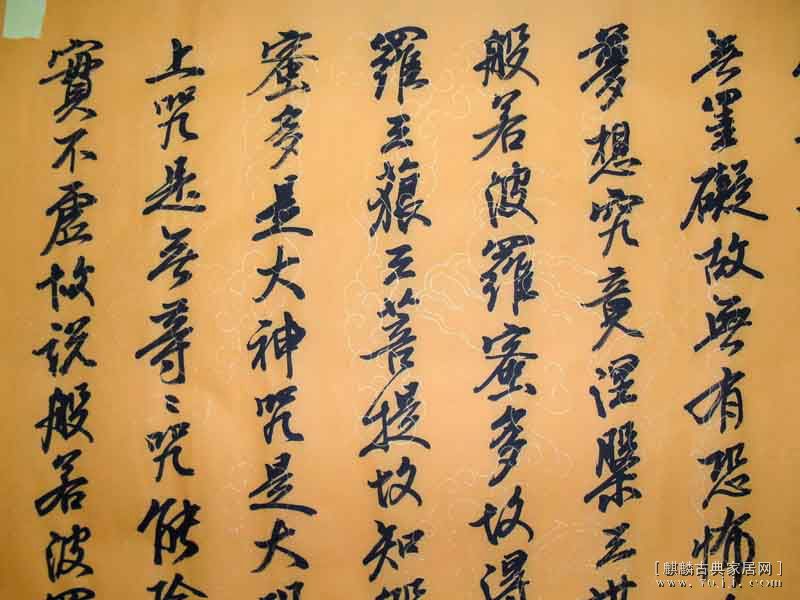 无罣礙故無有恐怖
夢想究竟涅槃三世
般若波羅蜜多故得
羅三藐三菩提故知般
蜜多是大神咒是大
上咒是无等〻咒能除
實不虛故説般若波羅
[麒麟古典家居网]
www.7ojj.com